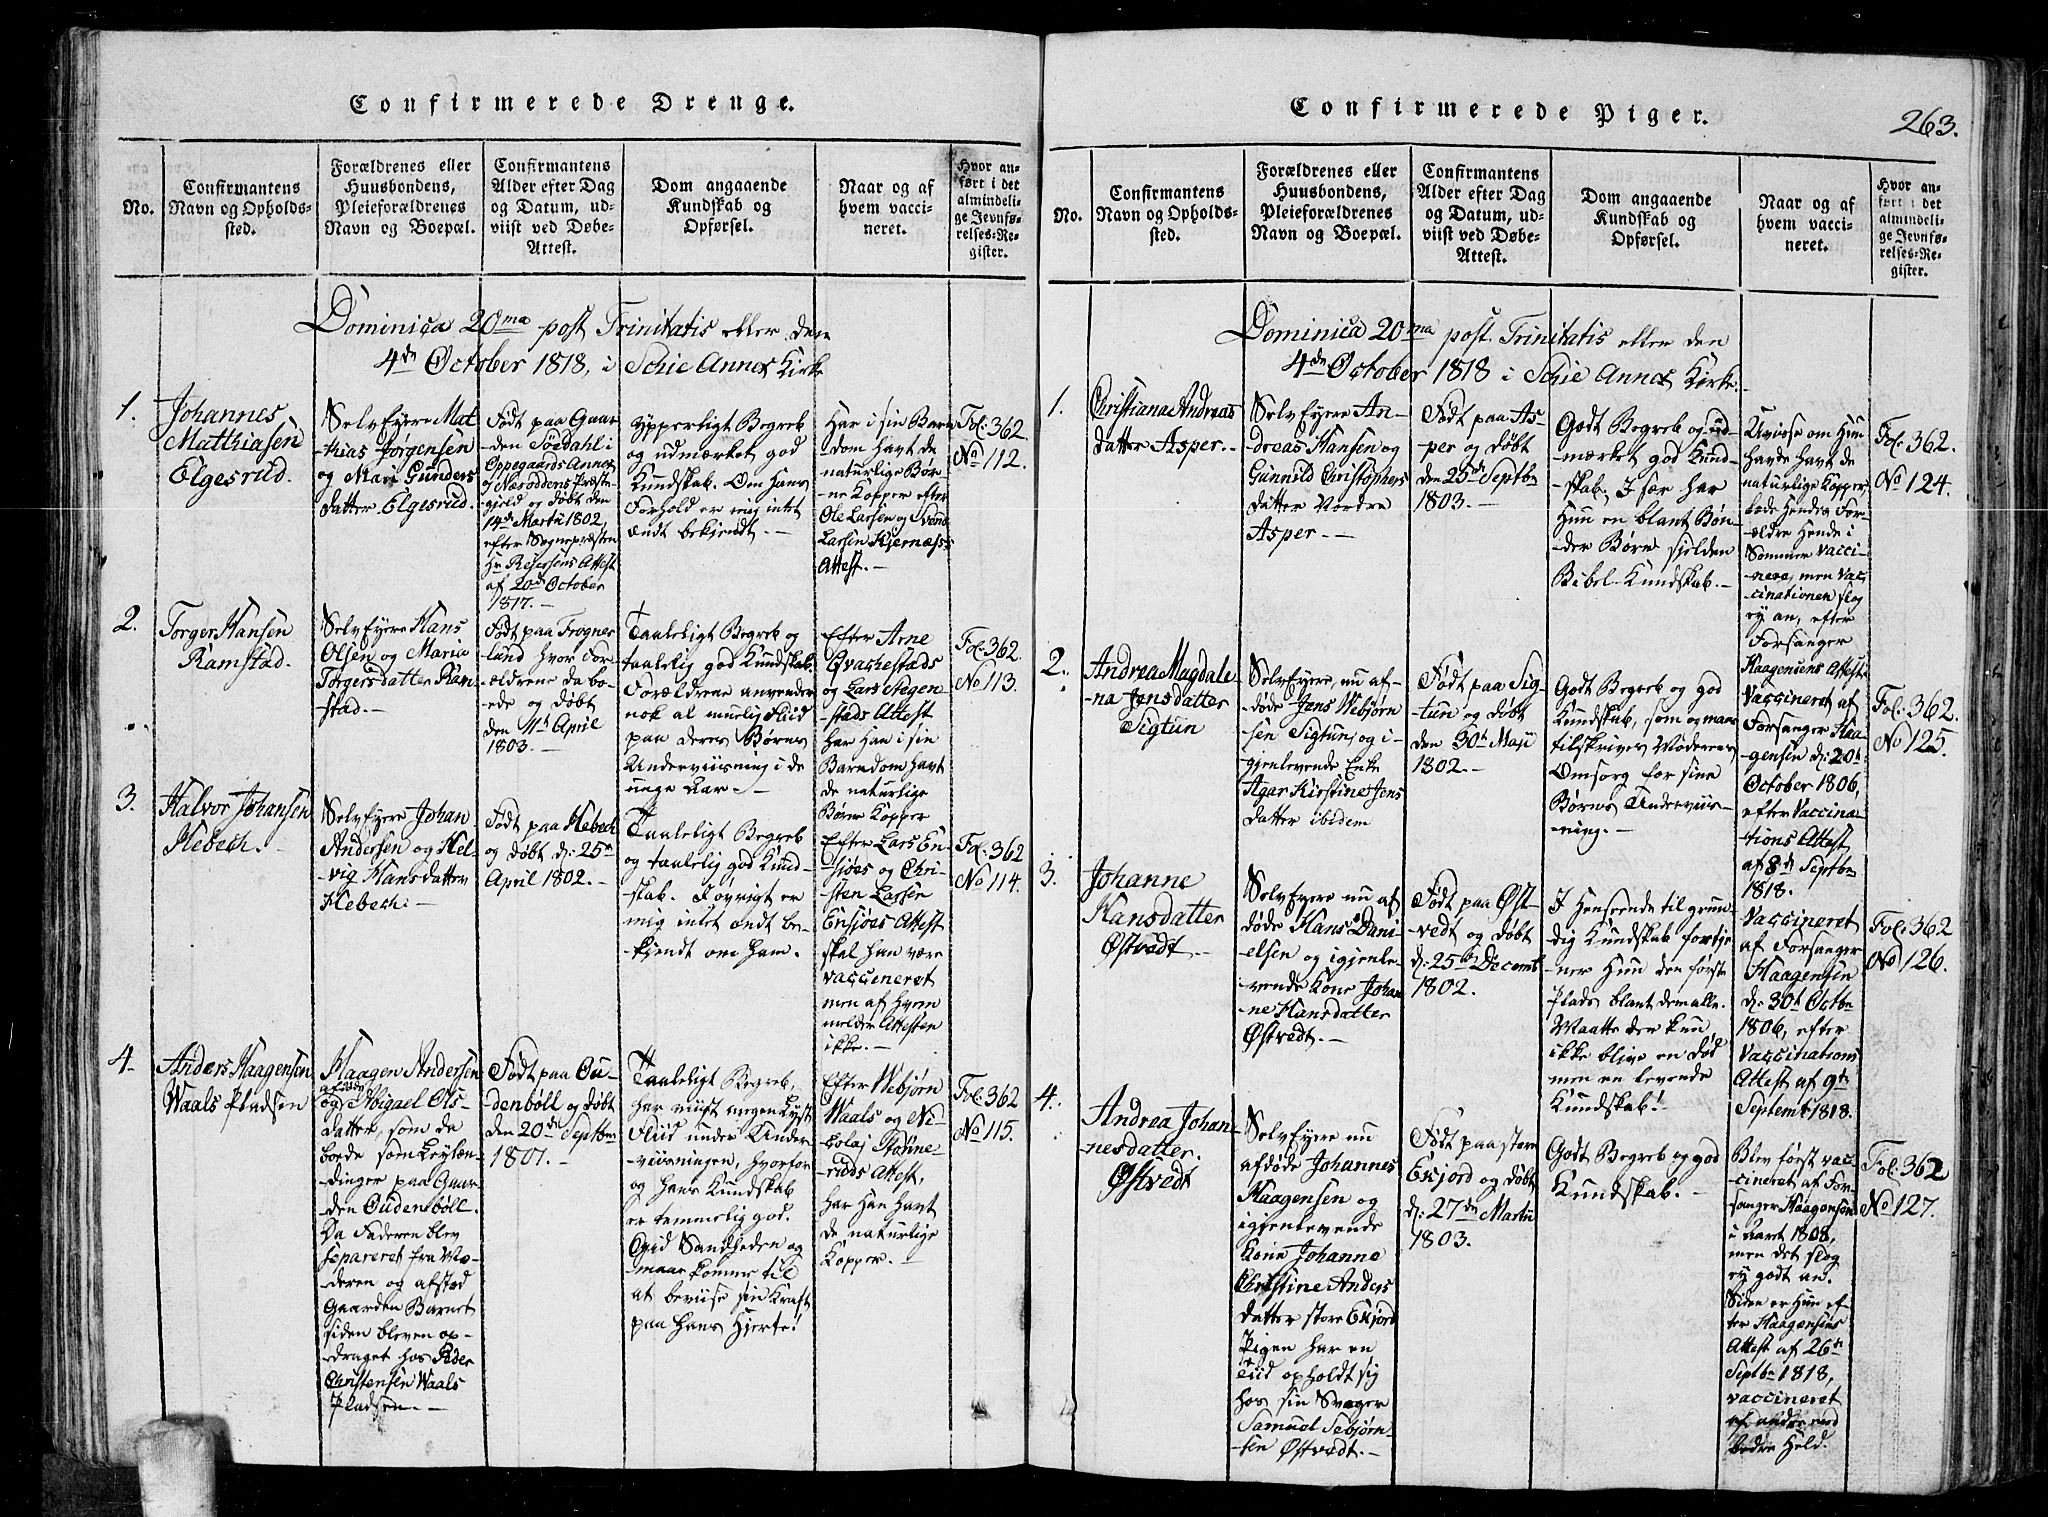 Confirmerede Drenge.
No.
Confirmantens
Navn og Opholds-
sted.
Forældrenes eller
Huusbondens,
Pleieforældrenes
Navn og Boepæl.
Confirmantens
Alder efter Dag
og Datum, ud-
viist ved Døbe-
Attest.
Dom angaaende
Kundskab og
Opførsel.
Naar og af
hvem vacci-
neret.
Hvor an-
ført i det
almindeli-
ge Jevnfø-
relses-Re-
gister.
Dominica 20ma post Trinitatis eller den
4de October 1818, i Schie Annex Kirke
1.
Johannes
Matthiasen
Elgesrud.
SelvEyere Mat
thias Jørgensen
og Mari Gunders
datter Elgesrud.
Født paa Gaar
den i
Oppegaards Annex
og Næsoddens Præste
gjeld og døbt den
14de Martii 1802,
efter Sognepræsten
Hr Attest
af 20de October
1817.-
Ypperligt Begreb
og udmærket god
Kundskab. Om hans
Forhold er mig intet
ondt bekjendt.-
Har i sin Barn
dom havt de
naturlige Bør-
ne Kopper efter
Ole Larsen og Svend
Larsen Kjernæss
Attest.-
Fol: 362.
No 112.
2.
Torger Hansen
Ramstad.
SelvEyere Hans
Olsen og Maria
Torgersdatter Ram
stad.-
Født paa Frogner
land hvor For
ældrene da bo-
ede og døbt
den 11te April
1803.-
Taaleligt Begreb og
taalelig god Kundskab.
Forældrene anvender
nok al muelig Flid
paa deres Børns
Underviisning i de
unge Aar.-
Efter Arne
og Lars Stegen
stads Attest
har Han i sin
Barndom havt
de naturlige
Børne Kopper
Fol: 362.
No 113.
3.
Halvor Johansen
Hebech.-
SelvEyere Johan
Andersen og Hel-
vig Hansdatter
Hebech:-
Født paa Hebech
og døbt d: 25de
April 1802.-
Taaleligt Begreb
og taalelig god Kund
skab. I øvrigt er
mig intet ondt be-
kjendt om ham.
Efter Lars En-
sjøes og Chri-
sten Larsen
Ensjøes Attest
skal han være
vaccineret
men af Hvem
melder Attesten
ikke.-
Fol: 362
No 114.
4.
Anders Haagensen
Waals Pladsen
Haagen Andersen
og Abigael Ols-
datter, som da
boede som Leylæn-
dinger paa Gaar
den Oudenbøll.
Da Faderen blev
separeret fra Mo-
deren og afstod
Gaarden Barnet
siden bleven op-
draget hos Peder
Christensen Waals
Pladsen.-
Født paa Ou-
denbøll og døbt
den 20de Septbr
1801.-
Taaleligt Begreb,
har viist megen Lyst
Flid under Under-
viisningen, hvorfor
og hans Kundskab
er temmelig god.
Gud Sandheden og
maae komme til
at beviise sin Kraft
paa hans Hjerte!
Efter Webjørn
Waals og Ni-
colaj Stønne-
ruds Attest,
har Han havt
de naturlige
Kopper.-
Fol: 362
No 115.
Confirmerede Piger.
263.
No.
Confirmantens
Navn og Opholds-
sted.
Forældrenes eller
Huusbondens,
Pleieforældrenes
Navn og Boepæl.
Confirmantens
Alder efter Dag
og Datum, ud-
viist ved Døbe-
Attest.
Dom angaaende
Kundskab og
Opførsel.
Naar og af
hvem vacci-
neret.
Hvor an-
ført i det
almindeli-
ge Jevnfø-
relses-Re-
gister.
Dominica 20ma post. Trinitatis eller den
4de October 1818 i Schie Annex Kirke.
1.
Christiana Andreas
datter Asper.-
SelvEyere An-
dreas Hansen og
Gunnild Christophers
datter Nordre
Asper.-
Født paa As-
per og døbt
den 25de Septbr
1803.-
Godt Begreb og ud-
mærket god Kund
skab. I sær har
Hun en blant Bøn-
der Børn sjelden
Bibel-Kundskab.-
Uvisse om Hun
havde havt de
naturlige Kopper,
lode Hendes For-
ældre Hende i
Sommer vacci-
nere, men Vac-
cinationen slog
ey an, efter
Forsanger
Haagensens Attest.
Fol: 362.
No 124.
2.
Andrea Magdale
na Jensdatter
Sigtun
SelvEyere, nu af-
døde Jens Webjørn
sen Sigtun, og i-
gjenlevende Enke
Agar Kirstine Jens
datter ibidem
Født paa Sig-
tun og døbt
den 30te Maji
1802.-
Godt Begreb og god
Kundskab, som og maae
tilskrives Moderens
Omsorg for sine
Børns Underviis-
ning.-
Vaccineret af
Forsanger Haa-
gensen d: 20de
October 1806,
efter Vaccina-
tions Attest
af 8de Septbr
1818.
Fol: 362.
No 125.
3.
Johanne
Hansdatter
Østvedt.-
SelvEyere nu af
døde Hans Dani-
elsen og igjenle-
vende Kone Johan
ne Hansdatter
Østvedt.-
Født paa Øst-
vedt og døbt
d: 25de Decemb
1802.
I Henseende til grun
dig Kundskab fortje
ner Hun den første
Plads blant dem alle.
Maatte den kun
ikke blive en død
men en levende
Kundskab!-
Vaccineret
af Forsanger
Haagensen
d: 30te Octbr
1806, efter
Vaccinations
Attest af 9de
Septemb 1818.
Fol: 362
No 126.
4.
Andrea Johan
nesdatter.
Østvedt
SelvEyere nu
afdøde Johannes
Haagensen og
igjenlevende
Kone Johanne
Christine Anders
datter store Ekjord
Pigen har en
Tid opholdt sig
hos sin Svoger
Samuel Sebjørn-
sen Østvedt.-
Født paa store
Ekjord og døbt
d: 27de Martii
1803.
Godt Begreb og god
Kundskab.-
Blev først vac-
cineret af For-
sanger Haagensen
i Aaret 1808,
men det slog
ey godt an.
Siden er Hun ef-
ter Haagensens
Attest af 26de
Septbr 1818,
vaccineret
med
bedre Held.
Fol: 362
No 127.